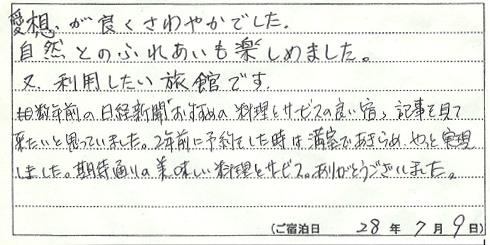 愛想が良くさわやかでした。
自然とのふれあいも楽しめました。
又、利用したい旅館です。
数年前の日経新聞「おすすめの料理とサービスの良い宿」記事を見て
来たいと思っていました。2年前に予約をした時は満室であきらめ、やっと実現
しました。期待通りの美味しい料理とサービス。ありがとうございました。
(ご宿泊日 28年 7月 9日)